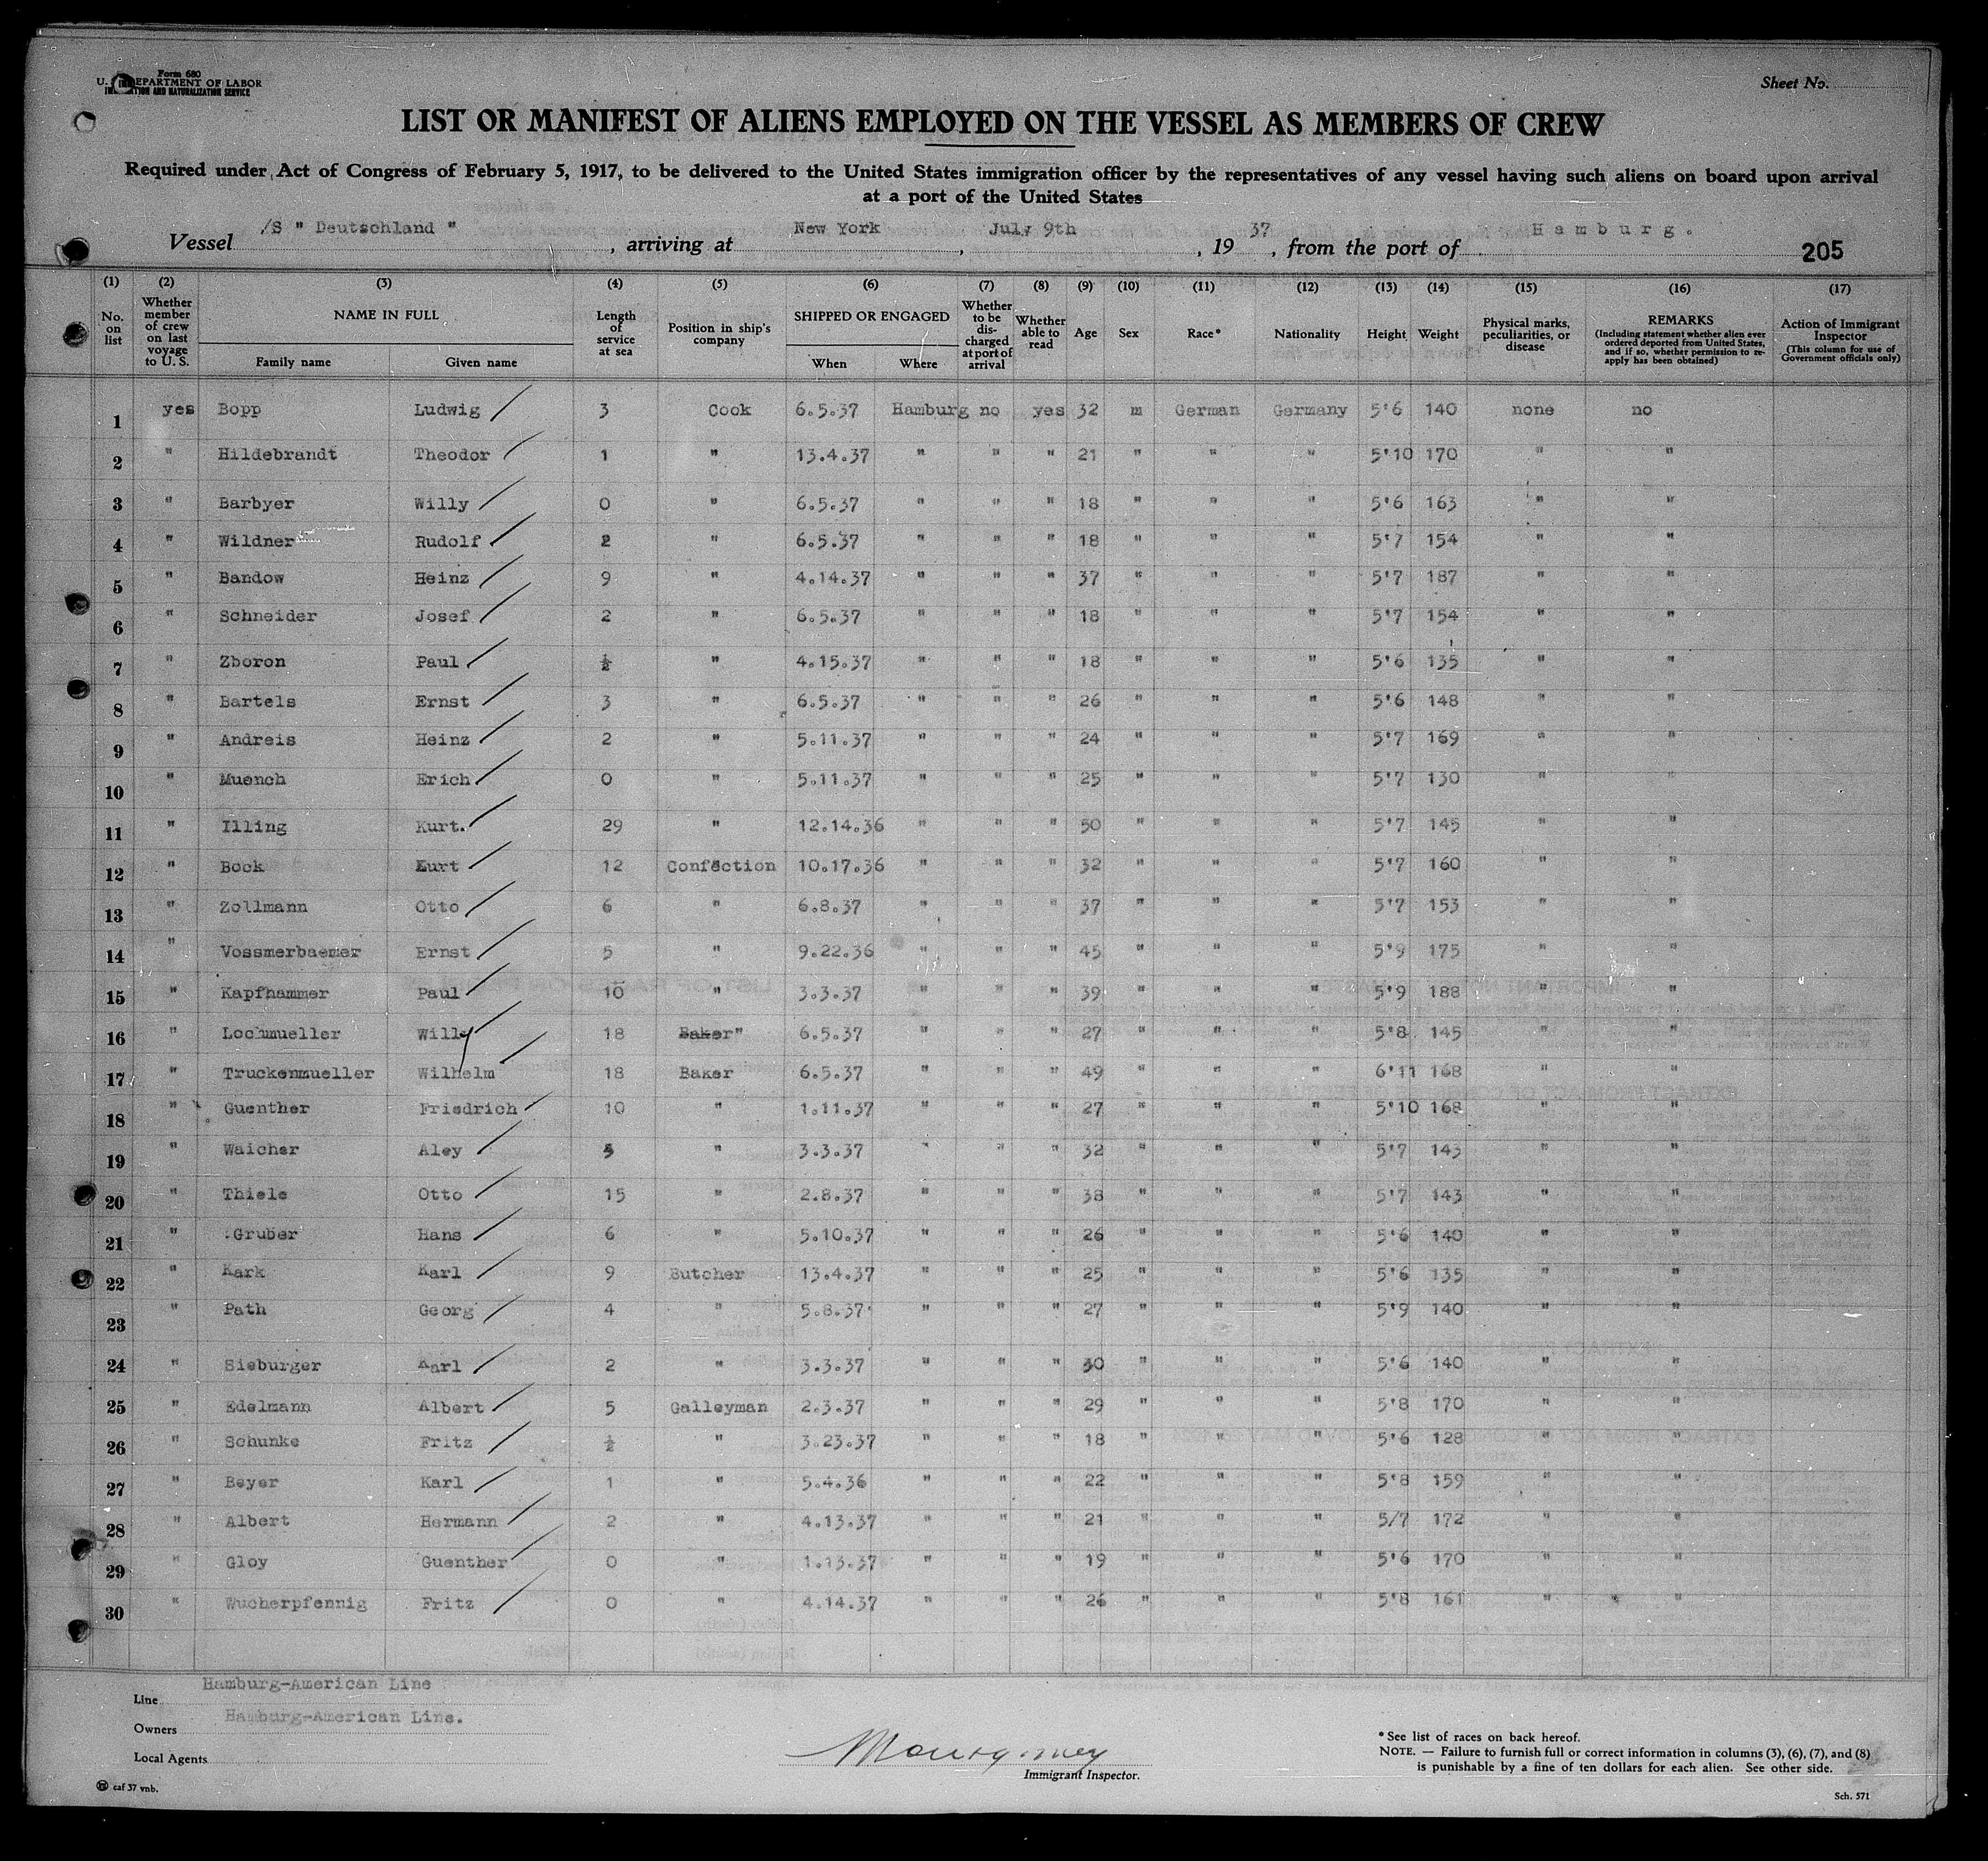 Form 680
U. S. DEPARTMENT OF LABOR
IMMIGRATION AND NATURALIZATION SERVICE
Sheet No.
LIST OR MANIFEST OF ALIENS EMPLOYED ON THE VESSEL AS MEMBERS OF CREW
Required under Act of Congress of February 5, 1917, to be delivered to the United States immigration officer by the representatives of any vessel having such aliens on board upon arrival
at a port of the United States
Vessel /S " Deutschland " , arriving at New York , July 9th , 19 37 , from the port of Hamburg. 205
(1) (2) (3) (4) (5) (6) (7) (8) (9) (10) (11) (12) (13) (14) (15) (16) (17)
No. on list Whether member of crew on last voyage to U. S. NAME IN FULL Family name Given name Length of service at sea Position in ship's company SHIPPED OR ENGAGED When Where Whether to be discharged at port of arrival Whether able to read Age Sex Race* Nationality Height Weight Physical marks, peculiarities, or disease REMARKS (Including statement whether alien ever ordered deported from United States, and if so, whether permission to re-apply has been obtained) Action of Immigrant Inspector (This column for use of Government officials only)
1 yes Bopp Ludwig / 3 Cook 6.5.37 Hamburg no yes 32 m German Germany 5'6 140 none no
2 " Hildebrandt Theodor / 1 " 13.4.37 " " " 21 " " " 5'10 170 " "
3 " Barbyer Willy / 0 " 6.5.37 " " " 18 " " " 5'6 163 " "
4 " Wildner Rudolf / 2 " 6.5.37 " " " 18 " " " 5'7 154 " "
5 " Bandow Heinz / 9 " 4.14.37 " " " 37 " " " 5'7 187 " "
6 " Schneider Josef / 2 " 6.5.37 " " " 18 " " " 5'7 154 " "
7 " Zboron Paul / ½ " 4.15.37 " " " 18 " " " 5'6 135 " "
8 " Bartels Ernst / 3 " 6.5.37 " " " 26 " " " 5'6 148 " "
9 " Andreis Heinz / 2 " 5.11.37 " " " 24 " " " 5'7 169 " "
10 " Muench Erich / 0 " 5.11.37 " " " 25 " " " 5'7 130 " "
11 " Illing Kurt. / 29 " 12.14.36 " " " 50 " " " 5'7 145 " "
12 " Bock Kurt / 12 Confection 10.17.36 " " " 32 " " " 5'7 160 " "
13 " Zollmann Otto / 6 " 6.8.37 " " " 37 " " " 5'7 153 " "
14 " Vossmerbaemer Ernst / 5 " 9.22.36 " " " 45 " " " 5'9 175 " "
15 " Kapfhammer Paul / 10 " 3.3.37 " " " 39 " " " 5'9 188 " "
16 " Lochmueller Willy / 18 Baker" 6.5.37 " " " 27 " " " 5'8 145 " "
17 " Truckenmueller Wilhelm / 18 Baker 6.5.37 " " " 49 " " " 6'11 168 " "
18 " Guenther Friedrich / 10 " 1.11.37 " " " 27 " " " 5'10 168 " "
19 " Waicher Aley / 5 " 3.3.37 " " " 32 " " " 5'7 143 " "
20 " Thiele Otto / 15 " 2.8.37 " " " 38 " " " 5'7 143 " "
21 " Gruber Hans / 6 " 5.10.37 " " " 26 " " " 5'6 140 " "
22 " Kark Karl / 9 Butcher 13.4.37 " " " 25 " " " 5'6 135 " "
23 " Path Georg / 4 " 5.8.37 " " " 27 " " " 5'9 140 " "
24 " Sieburger Karl / 2 " 3.3.37 " " " 30 " " " 5'6 140 " "
25 " Edelmann Albert / 5 Galleyman 2.3.37 " " " 29 " " " 5'8 170 " "
26 " Schunke Fritz / ½ " 3.23.37 " " " 18 " " " 5'6 128 " "
27 " Beyer Karl / 1 " 5.4.36 " " " 22 " " " 5'8 159 " "
28 " Albert Hermann / 2 " 4.13.37 " " " 21 " " " 5/7 172 " "
29 " Gloy Guenther / 0 " 1.13.37 " " " 19 " " " 5'6 170 " "
30 " Wucherpfennig Fritz / 0 " 4.14.37 " " " 26 " " " 5'8 161 " "
Line Hamburg-American Line
Owners Hamburg-American Line.
Local Agents
Immigrant Inspector.
* See list of races on back hereof.
NOTE. — Failure to furnish full or correct information in columns (3), (6), (7), and (8)
is punishable by a fine of ten dollars for each alien. See other side.
caf 37 vnb.
Sch. 571